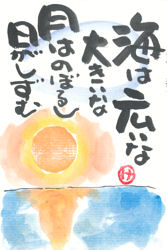 海は広いな
大きいな
月はのぼるし
日がしずむ
け